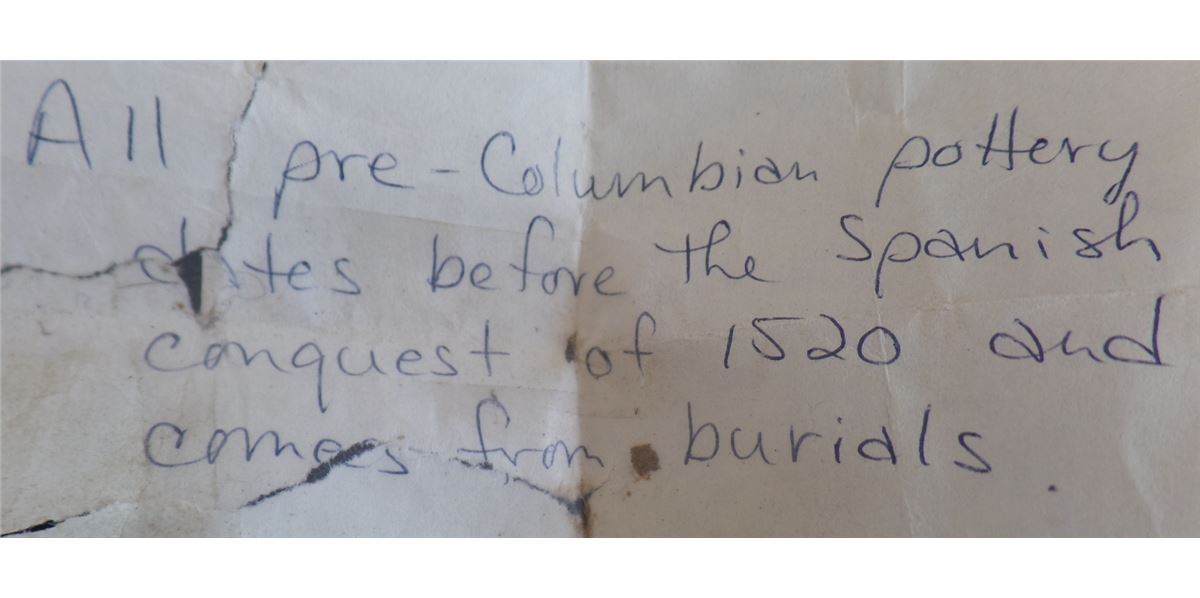 All pre-Columbian pottery
dates before the Spanish
conquest of 1520 and
comes from burials.